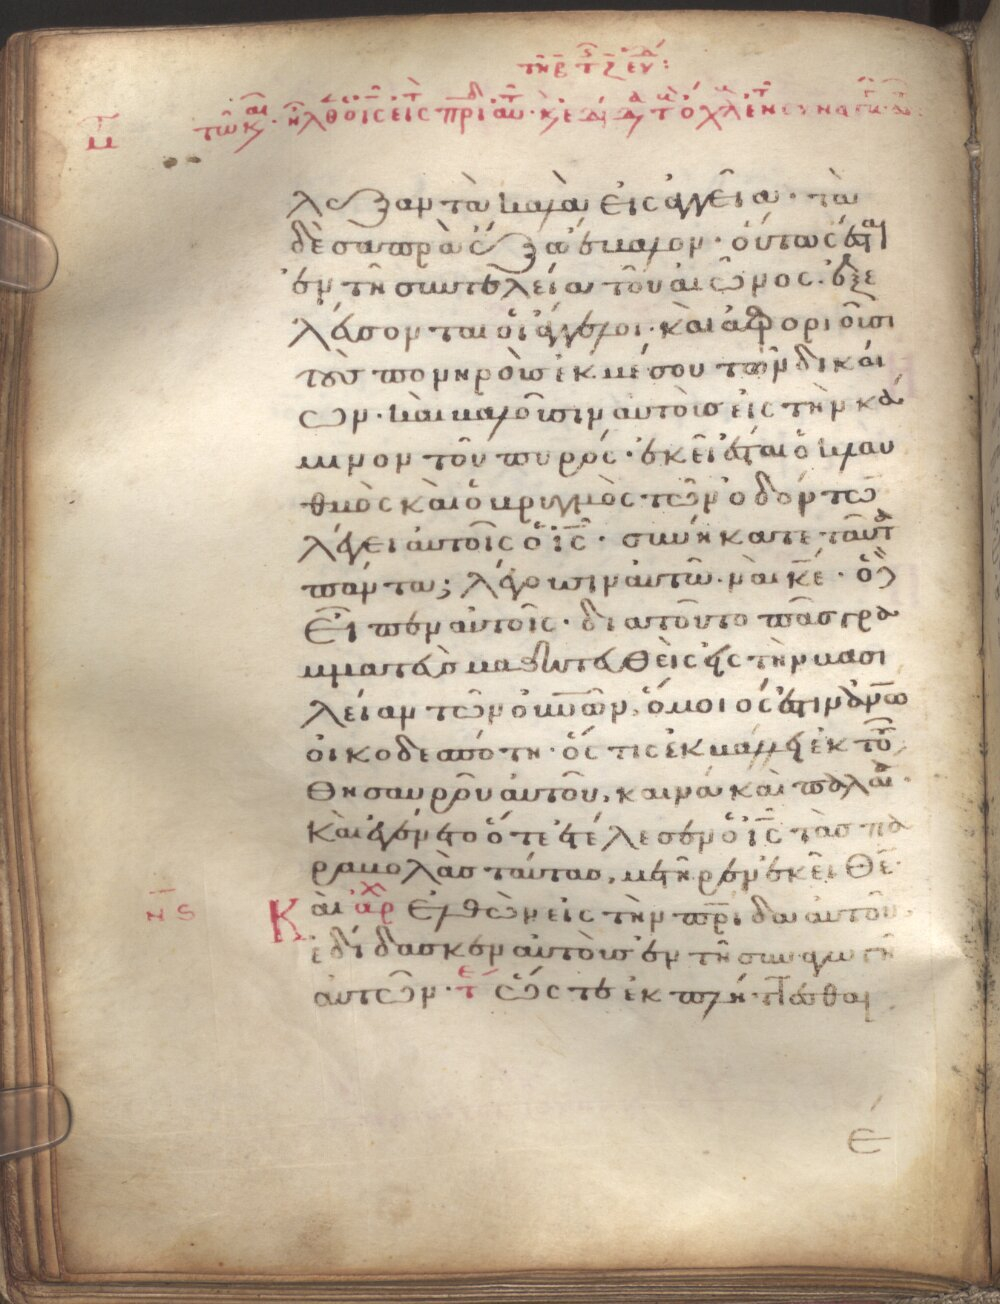 τῆ β τ ζ ευ:
τῶ κ. ἦλθ ὁ ις εἰς πρι αυ. κ ε
λεξαν τὰ καλὰ εἰς ἀγγεῖα· τὰ
δὲ σαπρὰ ἔξω ἔβαλον· οὕτως ἔσται
ἐν τῆ συντελεία τοῦ αἰῶνος· ἐξε
λεύσονται οἱ ἄγγελοι· καὶ ἀφοριοῦσι
τοὺς πονηροὺς ἐκ μέσου τῶν δικαί
ων· καὶ βαλοῦσιν αὐτοὺς εἰς τὴν κά
μινον τοῦ πυρός· ἐκεῖ ἔσται ὁ κλαυ
θμὸς καὶ ὁ βρυγμὸς τῶν ὀδόντω
λέγει αὐτοῖς ὁ ις· συνήκατε ταῦτ
πάντα; λέγουσιν αὐτῶ· ναὶ κε· ὁ δὲ
εἶπεν αὐτοῖς· διατοῦτο πᾶς γρα
μματεὺς μαθητευθεὶς εἰς τὴν βασι
λείαν τῶν οὐνῶν, ὅμοιός ἐστιν ἀνω
οἰκοδεσπότη· ὅστις ἐκβάλλει ἐκ τοῦ
θησαυροῦ αὐτοῦ, καινὰ καὶ παλαιά·
Καὶ ἐγένετο ὅτε ἐτέλεσεν ὁ ις τὰς πα
ραβολὰς ταύτας, μετῆρεν ἐκεῖθε
Καὶ αρχ ἐλθὼν εἰς τὴν πρίδα αὐτοῦ
ἐδίδασκεν αὐτοὺς ἐν τῆ συναγωγῆ
αὐτῶν· τε ὥστε ἐκπλήττεσθαι